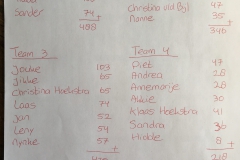 Sander 74 +
488
Christina v/d Bijl 47
Nonne 35 +
340
Team 3
Joukje 103
Jikke 65
Christina Hoekstra 65
Laas 74
Jan 52
Leny 54
Nynke 57 +
Team 4
Piet 47
Andrea 28
Annemarije 28
Aukje 30
Klaas Hoekstra 41
Sandra 36
Hidde 8 +
218